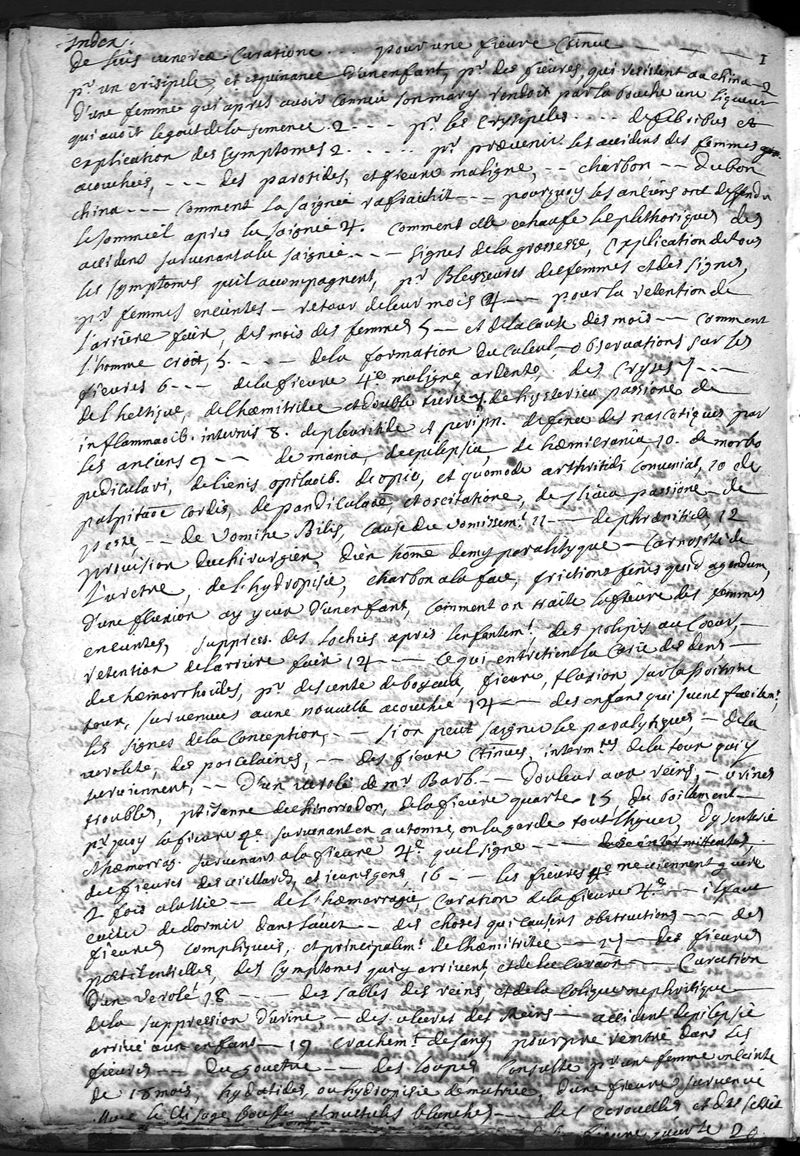 Index.
De luis venereæ Curatione . . . . . pour une fieure Ctinue — — — — 1
pr. un erisipele, et esquinancie d'un enfant, pr. des fieures, qui resistent au china - 2
d'une femme qui apres auoir connu son mary rendoit par la bouche une liqueur
qui auoit le gout de la semence 2 - - - pr. les Erysipeles . . . . . de febribus et
explication des symptomes 2 . . . . . pr. preuenir les accidens des femmes
acouchees, - - - des parotides, et fieure maligne, - - charbon - - du bon
china - - - Comment la saignée rafraichit - - - pourquoy les anciens ont deffendu
le sommeil apres la saignée 4. Comment elle echaufe les plethoriques des
accidens suruenants a la saignée - - - Signes de la grossesse, Explication de tous
les symptomes qui l'acompagnent, pr. Blesseures de femmes et des signes,
pr. femmes enceintes - retour de leur mois 4 - - pour la retention de
l'arriere faix, des mois des femmes 5 - et de la cause des mois - - Comment
l'homme croit, 5. - - - - de la formation du Calcul, observations sur les
fieures 6 - - - de la fieure 4e maligne ardente, des Cryses 7 - - -
de l'hectique, de l'hæmitritée et double tierce 7. de hysterica passione de
inflammaoib. internis 8. de pleuritide et peripn. des narcotiques par
les anciens 9 - - de mania, de epilepsia, de hæmicrania, 10. de morbo
pediculari, de lienis opilaoib. de opio, et quomodo arthritidi conueniat, 10 de
palpitaoe cordis, de pandiculaoe, et oscitatione, de iliaca passione - de
peste, - - de vomitu Bilis, Cause du vomissemt. 11 - - de phrænitide, 12
prouision du chirurgien, d'un home demy paralityque - Carnosité de
l'uretre, de l'hydropisie, charbon a la face, frictions
d'une fluxion aux yeux d'un enfant, Comment on traite la fieure des femmes
enceintes, suppress. des lochies apres l'enfantemt. des polipes au Coeur, -
retention de l'arriere faix 12 - - Ce qui entretient la Carie des dens -
des hæmorrhoides, pr. descente de boyaux, fieure, fluxion sur la poitrine
toux, suruenues a une nouuelle acouchée 14 - - des enfans qui suent
les signes de la Conception, - - si on peut saigner les paralytiques, - de la
verolete, des porcelaines, - - des fieures Ctinues, intermtes. de la toux qui y
suruiennent, - - d'un verolé de mr. Barb. - - douleur aux reins, - urines
troubles, ptisanne de Cinorrodon, de la fieure quarte 15 du
pr. quoy la fieure 4e. suruenant en automne, on la garde tout l'hyuer, dysenterie
et hæmorrag. suruenans a la fieure 4e. quel signe - - -
des fieures des vieillards, et jeunes gens, 16 - - les fieures 4e ne viennent guere
2 fois a la file - - de l'hæmorragie, Curation de la fieure 4e. - - il faut
euiter de dormir dans l'accez - des choses qui causent obstructions - - - des
fieures compliquées, et principalemt. de l'hæmitritée - - 17 - - des fieures
pestilentielles, des symptomes qui y arriuent, et de leur Curaon. - - - Curation
d'un verolé 18 - - - des sables des reins, et de la Colique nephritique -
de la suppression d'urine - des ulceres des reins - accident d'epilepsie
arriué aux enfans - 19 crachemt. de sang, pourpre rentré dans les
fieures - - du gouetre - - des loupes, Consulte pr. une femme enceinte
de 18 mois, hydatides, ou hydropisie de matrice, d'une fieure suruenue
auec le visage bouffi - - des ecrouelles et
fieure quarte 20